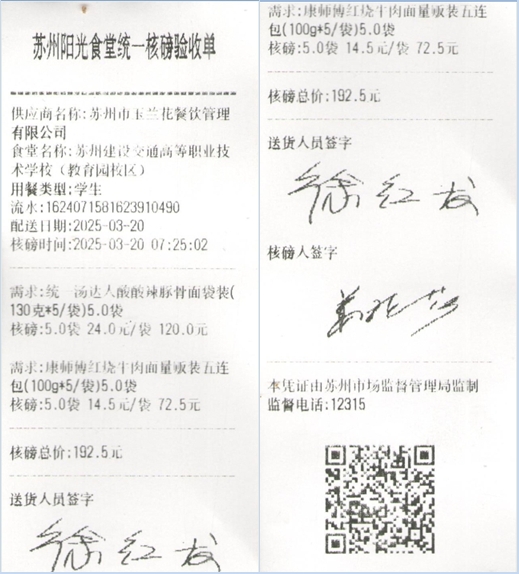 苏州阳光食堂统一核磅验收单
供应商名称:苏州市玉兰花餐饮管理
有限公司
食堂名称:苏州建设交通高等职业技
术学校(教育园校区)
用餐类型:学生
流水:1624071581623910490
配送日期:2025-03-20
核磅时间:2025-03-20 07:25:02
需求:统一汤达人酸酸辣豚骨面袋装(
130克*5/袋)5.0袋
核磅:5.0袋 24.0元/袋 120.0元
需求:康师傅红烧牛肉面量贩装五连
包(100g*5/袋)5.0袋
核磅:5.0袋 14.5元/袋 72.5元
核磅总价:192.5元
送货人员签字
徐红发
需求:康师傅红烧牛肉面量贩装五连
包(100g*5/袋)5.0袋
核磅:5.0袋 14.5元/袋 72.5元
核磅总价:192.5元
送货人员签字
徐红发
核磅人签字
本凭证由苏州市场监督管理局监制
监督电话:12315